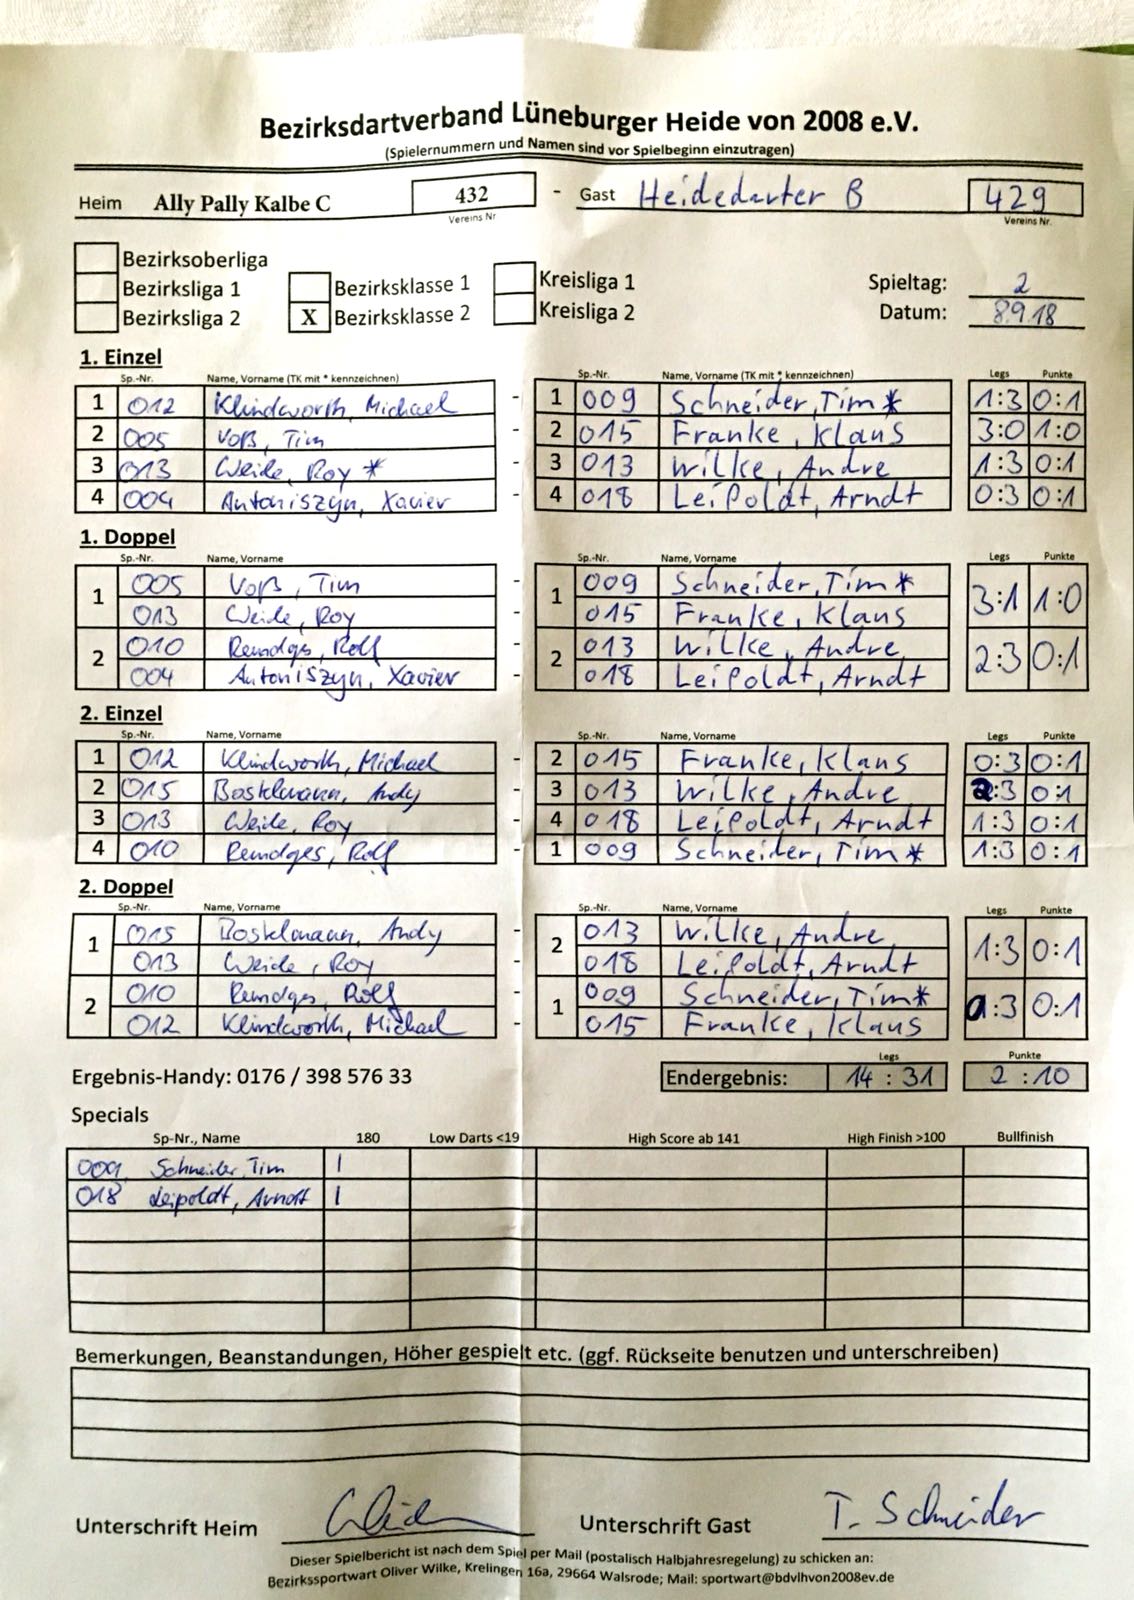 Bezirksdartverband Lüneburger Heide von 2008 e.V.
(Spielernummern und Namen sind vor Spielbeginn einzutragen)
Heim Ally Pally Kalbe C 432 - Gast Heidedarter B 429
Vereins Nr Vereins Nr.
Bezirksoberliga
Bezirksliga 1 Bezirksklasse 1 Kreisliga 1 Spieltag: 2
Bezirksliga 2 X Bezirksklasse 2 Kreisliga 2 Datum: 8.9.18
1. Einzel
Sp.-Nr. Name, Vorname (TK mit * kennzeichnen) Sp.-Nr. Name, Vorname (TK mit * kennzeichnen) Legs Punkte
1 012 Klindworth, Michael - 1 009 Schneider, Tim * 1:3 0:1
2 005 Voß, Tim - 2 015 Franke, Klaus 3:0 1:0
3 013 Weide, Roy * - 3 013 Wilke, Andre 1:3 0:1
4 004 Antoniszyn, Xavier - 4 018 Leipoldt, Arndt 0:3 0:1
1. Doppel
Sp.-Nr. Name, Vorname Sp.-Nr. Name, Vorname Legs Punkte
1 005 Voß, Tim - 1 009 Schneider, Tim * 3:1 1:0
013 Weide, Roy 015 Franke, Klaus
2 010 Remdges, Rolf - 2 013 Wilke, Andre 2:3 0:1
004 Antoniszyn, Xavier - 018 Leipoldt, Arndt
2. Einzel
Sp.-Nr. Name, Vorname Sp.-Nr. Name, Vorname Legs Punkte
1 012 Klindworth, Michael - 2 015 Franke, Klaus 0:3 0:1
2 015 Bostelmann, Andy - 3 013 Wilke, Andre 2:3 0:1
3 013 Weide, Roy - 4 018 Leipoldt, Arndt 1:3 0:1
4 010 Remdges, Rolf - 1 009 Schneider, Tim * 1:3 0:1
2. Doppel
Sp.-Nr. Name, Vorname Sp.-Nr. Name, Vorname Legs Punkte
1 015 Bostelmann, Andy - 2 013 Wilke, Andre 1:3 0:1
013 Weide, Roy - 018 Leipoldt, Arndt
2 010 Remdges, Rolf - 1 009 Schneider, Tim * :3 0:1
012 Klindworth, Michael - 015 Franke, Klaus
Legs Punkte
Ergebnis-Handy: 0176 / 398 576 33 Endergebnis: 14 : 31 2 : 10
Specials
Sp-Nr., Name 180 Low Darts <19 High Score ab 141 High Finish >100 Bullfinish
009 Schneider, Tim |
018 Leipoldt, Arndt |
Bemerkungen, Beanstandungen, Höher gespielt etc. (ggf. Rückseite benutzen und unterschreiben)
Unterschrift Heim Unterschrift Gast T. Schneider
Dieser Spielbericht ist nach dem Spiel per Mail (postalisch Halbjahresregelung) zu schicken an:
Bezirkssportwart Oliver Wilke, Krelingen 16a, 29664 Walsrode; Mail: sportwart@bdvlhvon2008ev.de